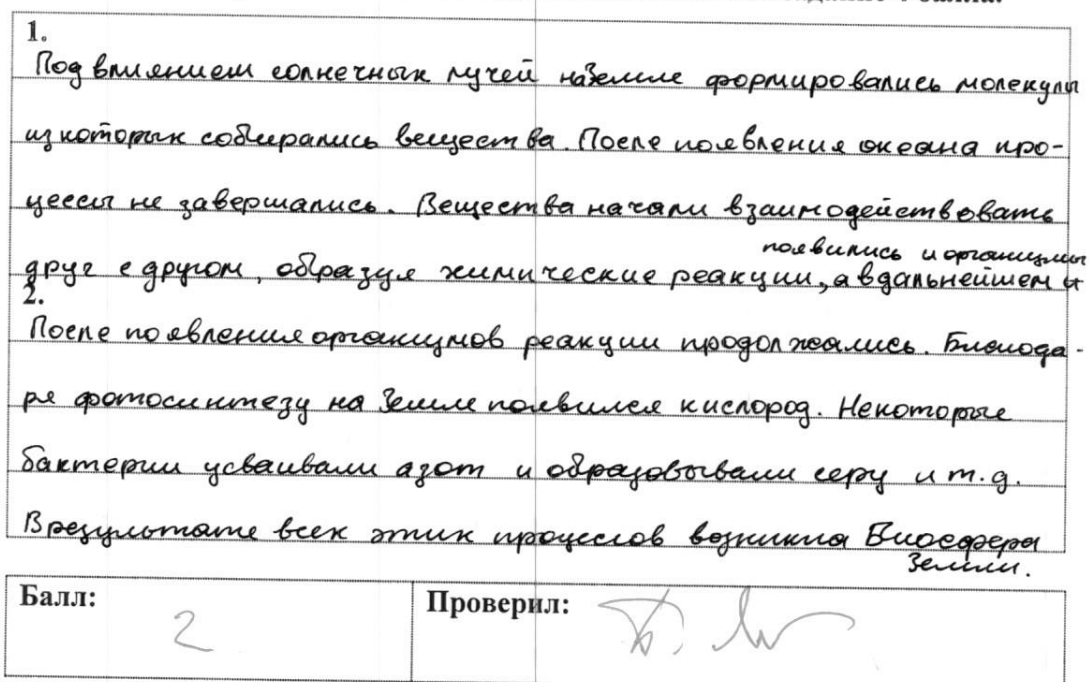 1.
Под влиянием солнечных лучей на Земле формировались молекулы
из которых собирались вещества. После появления океана про-
цессы не завершались. Вещества начали взаимодействовать
появились и организмы
друг с другом, образуя химические реакции, а в дальнейшем и
2.
После появления организмов реакции продолжались. Благода-
ря фотосинтезу на Земле появился кислород. Некоторые
бактерии усваивали азот и образовывали серу и т.д.
В результате всех этих процессов возникла Биосфера
Земли.
Балл:
2
Проверил: